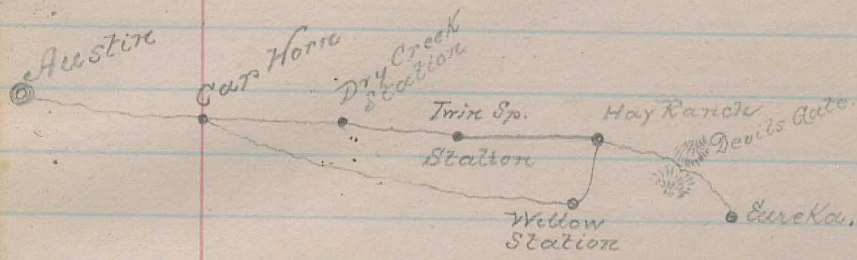 Austin
Cap Horn
Dry Creek
Station
Twin Sp.
Station
Hay Ranch
Devils Gate.
Willow
Station
Eureka.